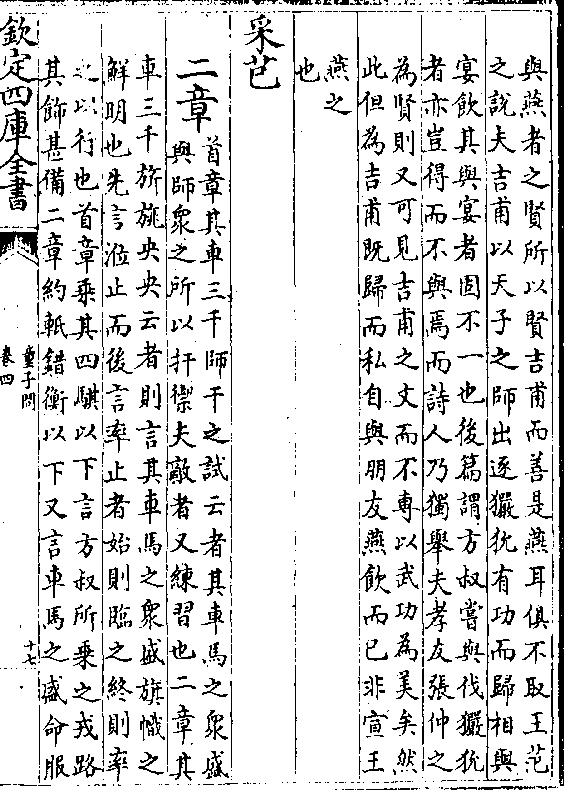 與燕者之賢所以賢吉甫而善是燕耳俱不取王范
之說夫吉甫以天子之師出逐玁狁有功而歸相與
宴飲其與宴者固不一也後篇謂方叔嘗與伐玁狁
者亦豈得而不與焉而詩人乃獨舉夫孝友張仲之
為賢則又可見吉甫之文而不專以武功為美矣然
此但為吉甫既歸而私自與朋友燕飲而已非宣王
燕之
也
采芑
二章
首章其車三千師干之試云者其車馬之衆盛
與師衆之所以扞禦夫敵者又練習也二章其
車三千旂旐央央云者則言其車馬之衆盛旗幟之
鮮明也先言涖止而後言率止者始則臨之終則率
之以行也首章乗其四騏以下言方叔所乗之戎路
其飾甚備二章約軝錯衡以下又言車馬之盛命服
欽定四庫全書
童子問
卷四
十七